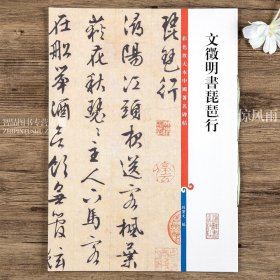 文徵明書琵琶行
彩色放大本中國著名碑帖
孫寶文 編
琵琶行
潯陽江頭夜送客楓葉
荻花秋瑟瑟主人下馬客
在船舉酒欲飲無管絃